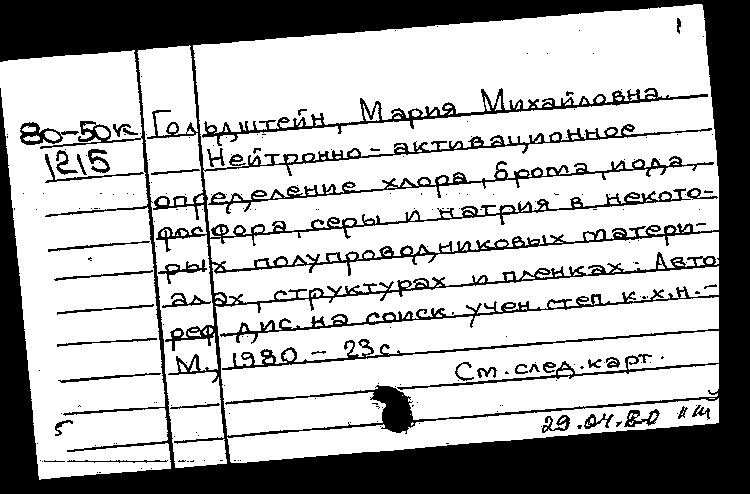 1
80-50к Гольдштейн, Мария Михайловна.
1215 Нейтронно-активационное
определение хлора, брома, иода,
фосфора, серы и натрия в некото-
рых полупроводниковых матери-
алах, структурах и пленках: Авто
реф. дис. на соиск. учен. степ. к.х.н.-
М., 1980.- 23с.
См. след. карт.
5 29.04.80